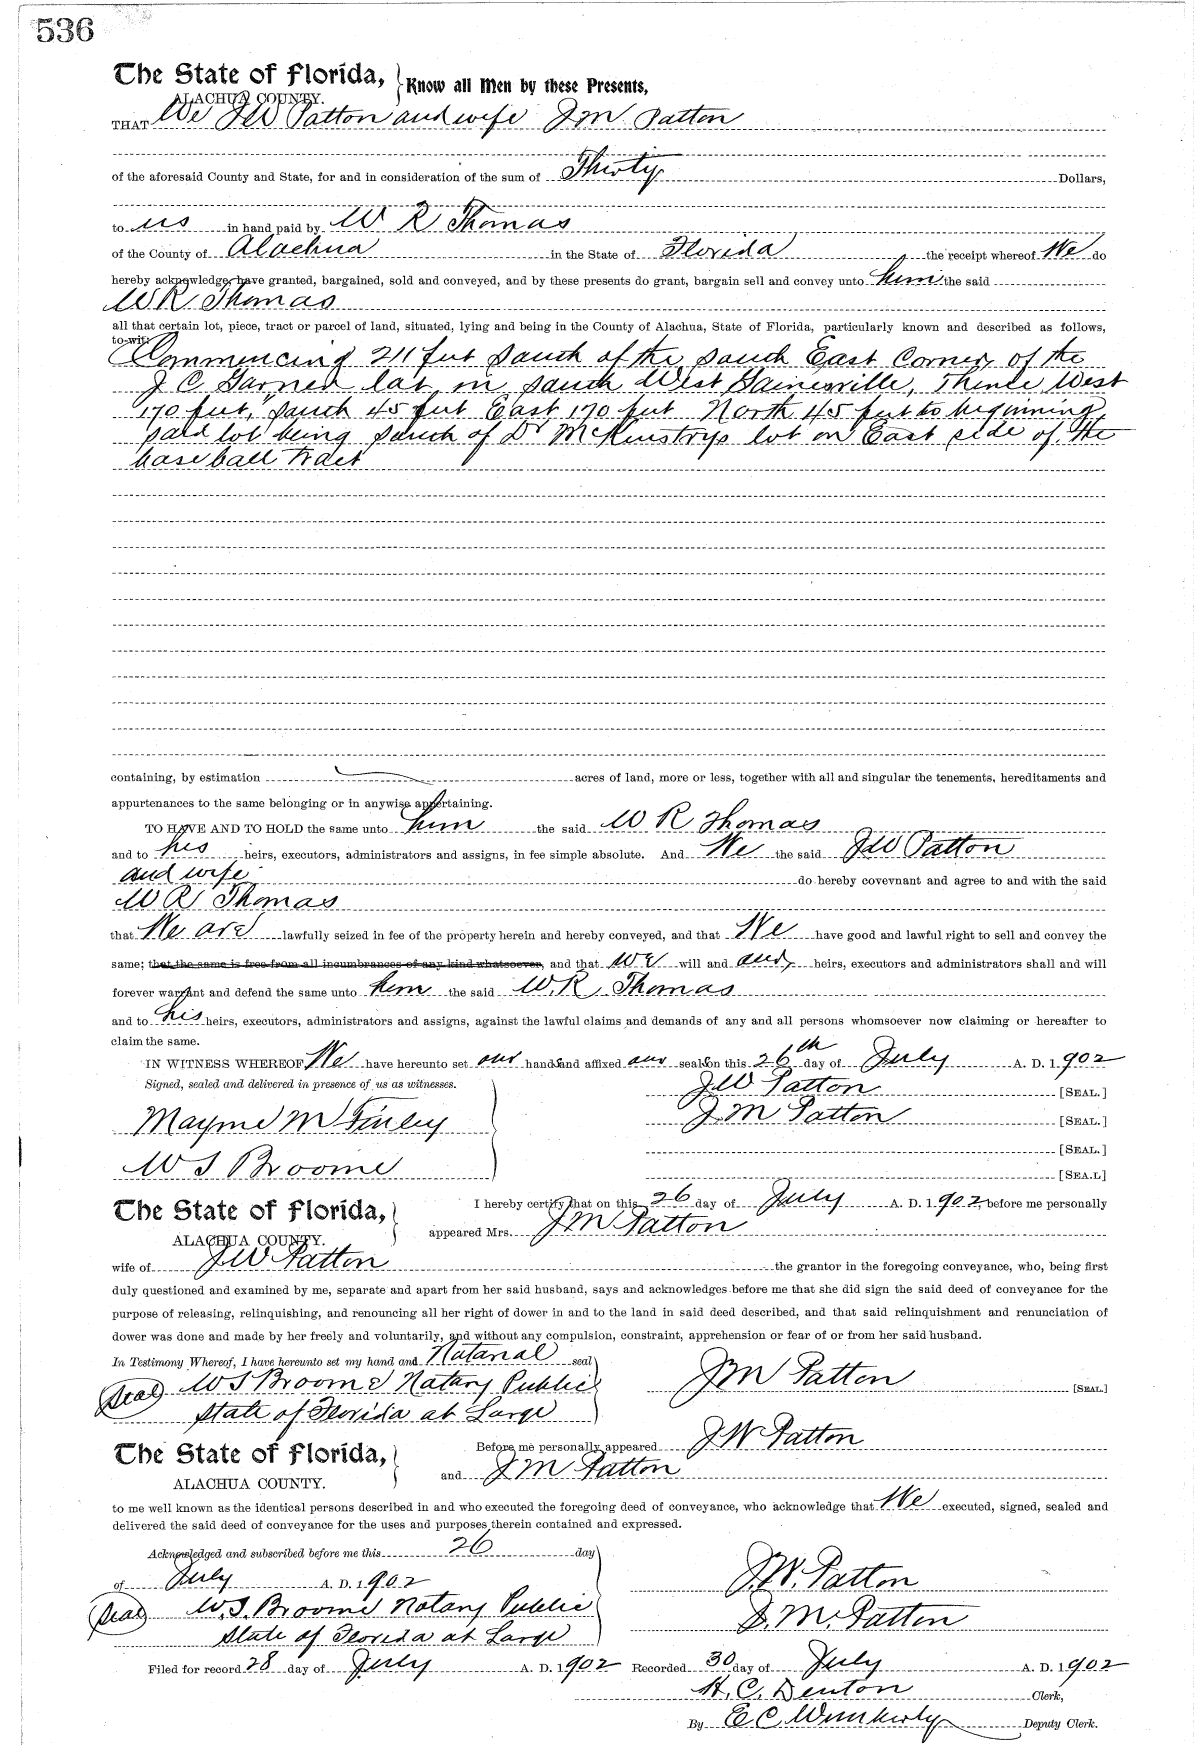 536
The State of Florida, Know all Men by these Presents,
ALACHUA COUNTY.
THAT We J W Patton and wife J M Patton
of the aforesaid County and State, for and in consideration of the sum of Thirty Dollars,
to us in hand paid by W R Thomas
of the County of Alachua in the State of Florida the receipt whereof We do
hereby acknowledge, have granted, bargained, sold and conveyed, and by these presents do grant, bargain sell and convey unto him the said
W R Thomas
all that certain lot, piece, tract or parcel of land, situated, lying and being in the County of Alachua, State of Florida, particularly known and described as follows,
to-wit:
Commencing 211 feet South of the South East Corner of the
J C Garner lot in South West Gainesville, Thence West
170 feet, South 45 feet East 170 feet North 45 feet to beginning
said lot being South of Dr McKinstrys lot on East side of the
base ball tract
containing, by estimation acres of land, more or less, together with all and singular the tenements, hereditaments and
appurtenances to the same belonging or in anywise appertaining.
TO HAVE AND TO HOLD the same unto him the said W R Thomas
and to his heirs, executors, administrators and assigns, in fee simple absolute. And We the said J W Patton
and wife do hereby covevnant and agree to and with the said
W R Thomas
that We are lawfully seized in fee of the property herein and hereby conveyed, and that We have good and lawful right to sell and convey the
same; that the same is free from all incumbrances of any kind whatsoever, and that we will and our heirs, executors and administrators shall and will
forever warrant and defend the same unto him the said W. R Thomas
and to his heirs, executors, administrators and assigns, against the lawful claims and demands of any and all persons whomsoever now claiming or hereafter to
claim the same.
IN WITNESS WHEREOF We have hereunto set our hands and affixed our seals on this 26th day of July A. D. 1902
Signed, sealed and delivered in presence of us as witnesses. J W Patton [SEAL.]
Mayme M Finley J M Patton [SEAL.]
[SEAL.]
W S Broome [SEA.L]
The State of Florida, I hereby certify that on this 26 day of July A. D. 1902 before me personally
ALACHUA COUNTY. appeared Mrs. J M Patton
wife of J W Patton the grantor in the foregoing conveyance, who, being first
duly questioned and examined by me, separate and apart from her said husband, says and acknowledges before me that she did sign the said deed of conveyance for the
purpose of releasing, relinquishing, and renouncing all her right of dower in and to the land in said deed described, and that said relinquishment and renunciation of
dower was done and made by her freely and voluntarily, and without any compulsion, constraint, apprehension or fear of or from her said husband.
In Testimony Whereof, I have hereunto set my hand and Notarial seal
Seal W S Broome Notary Public J M Patton [SEAL.]
State of Florida at Large
The State of Florida, Before me personally appeared J W Patton
ALACHUA COUNTY. and J M Patton
to me well known as the identical persons described in and who executed the foregoing deed of conveyance, who acknowledge that We executed, signed, sealed and
delivered the said deed of conveyance for the uses and purposes therein contained and expressed.
Acknowledged and subscribed before me this 26 day
of July A. D. 1902 J. W. Patton
Seal W. S. Broome Notary Public J. M. Patton
State of Florida at Large
Filed for record 28 day of July A. D. 1902 Recorded 30 day of July A. D. 1902
H. C. Denton Clerk,
By E C Wimberly Deputy Clerk.